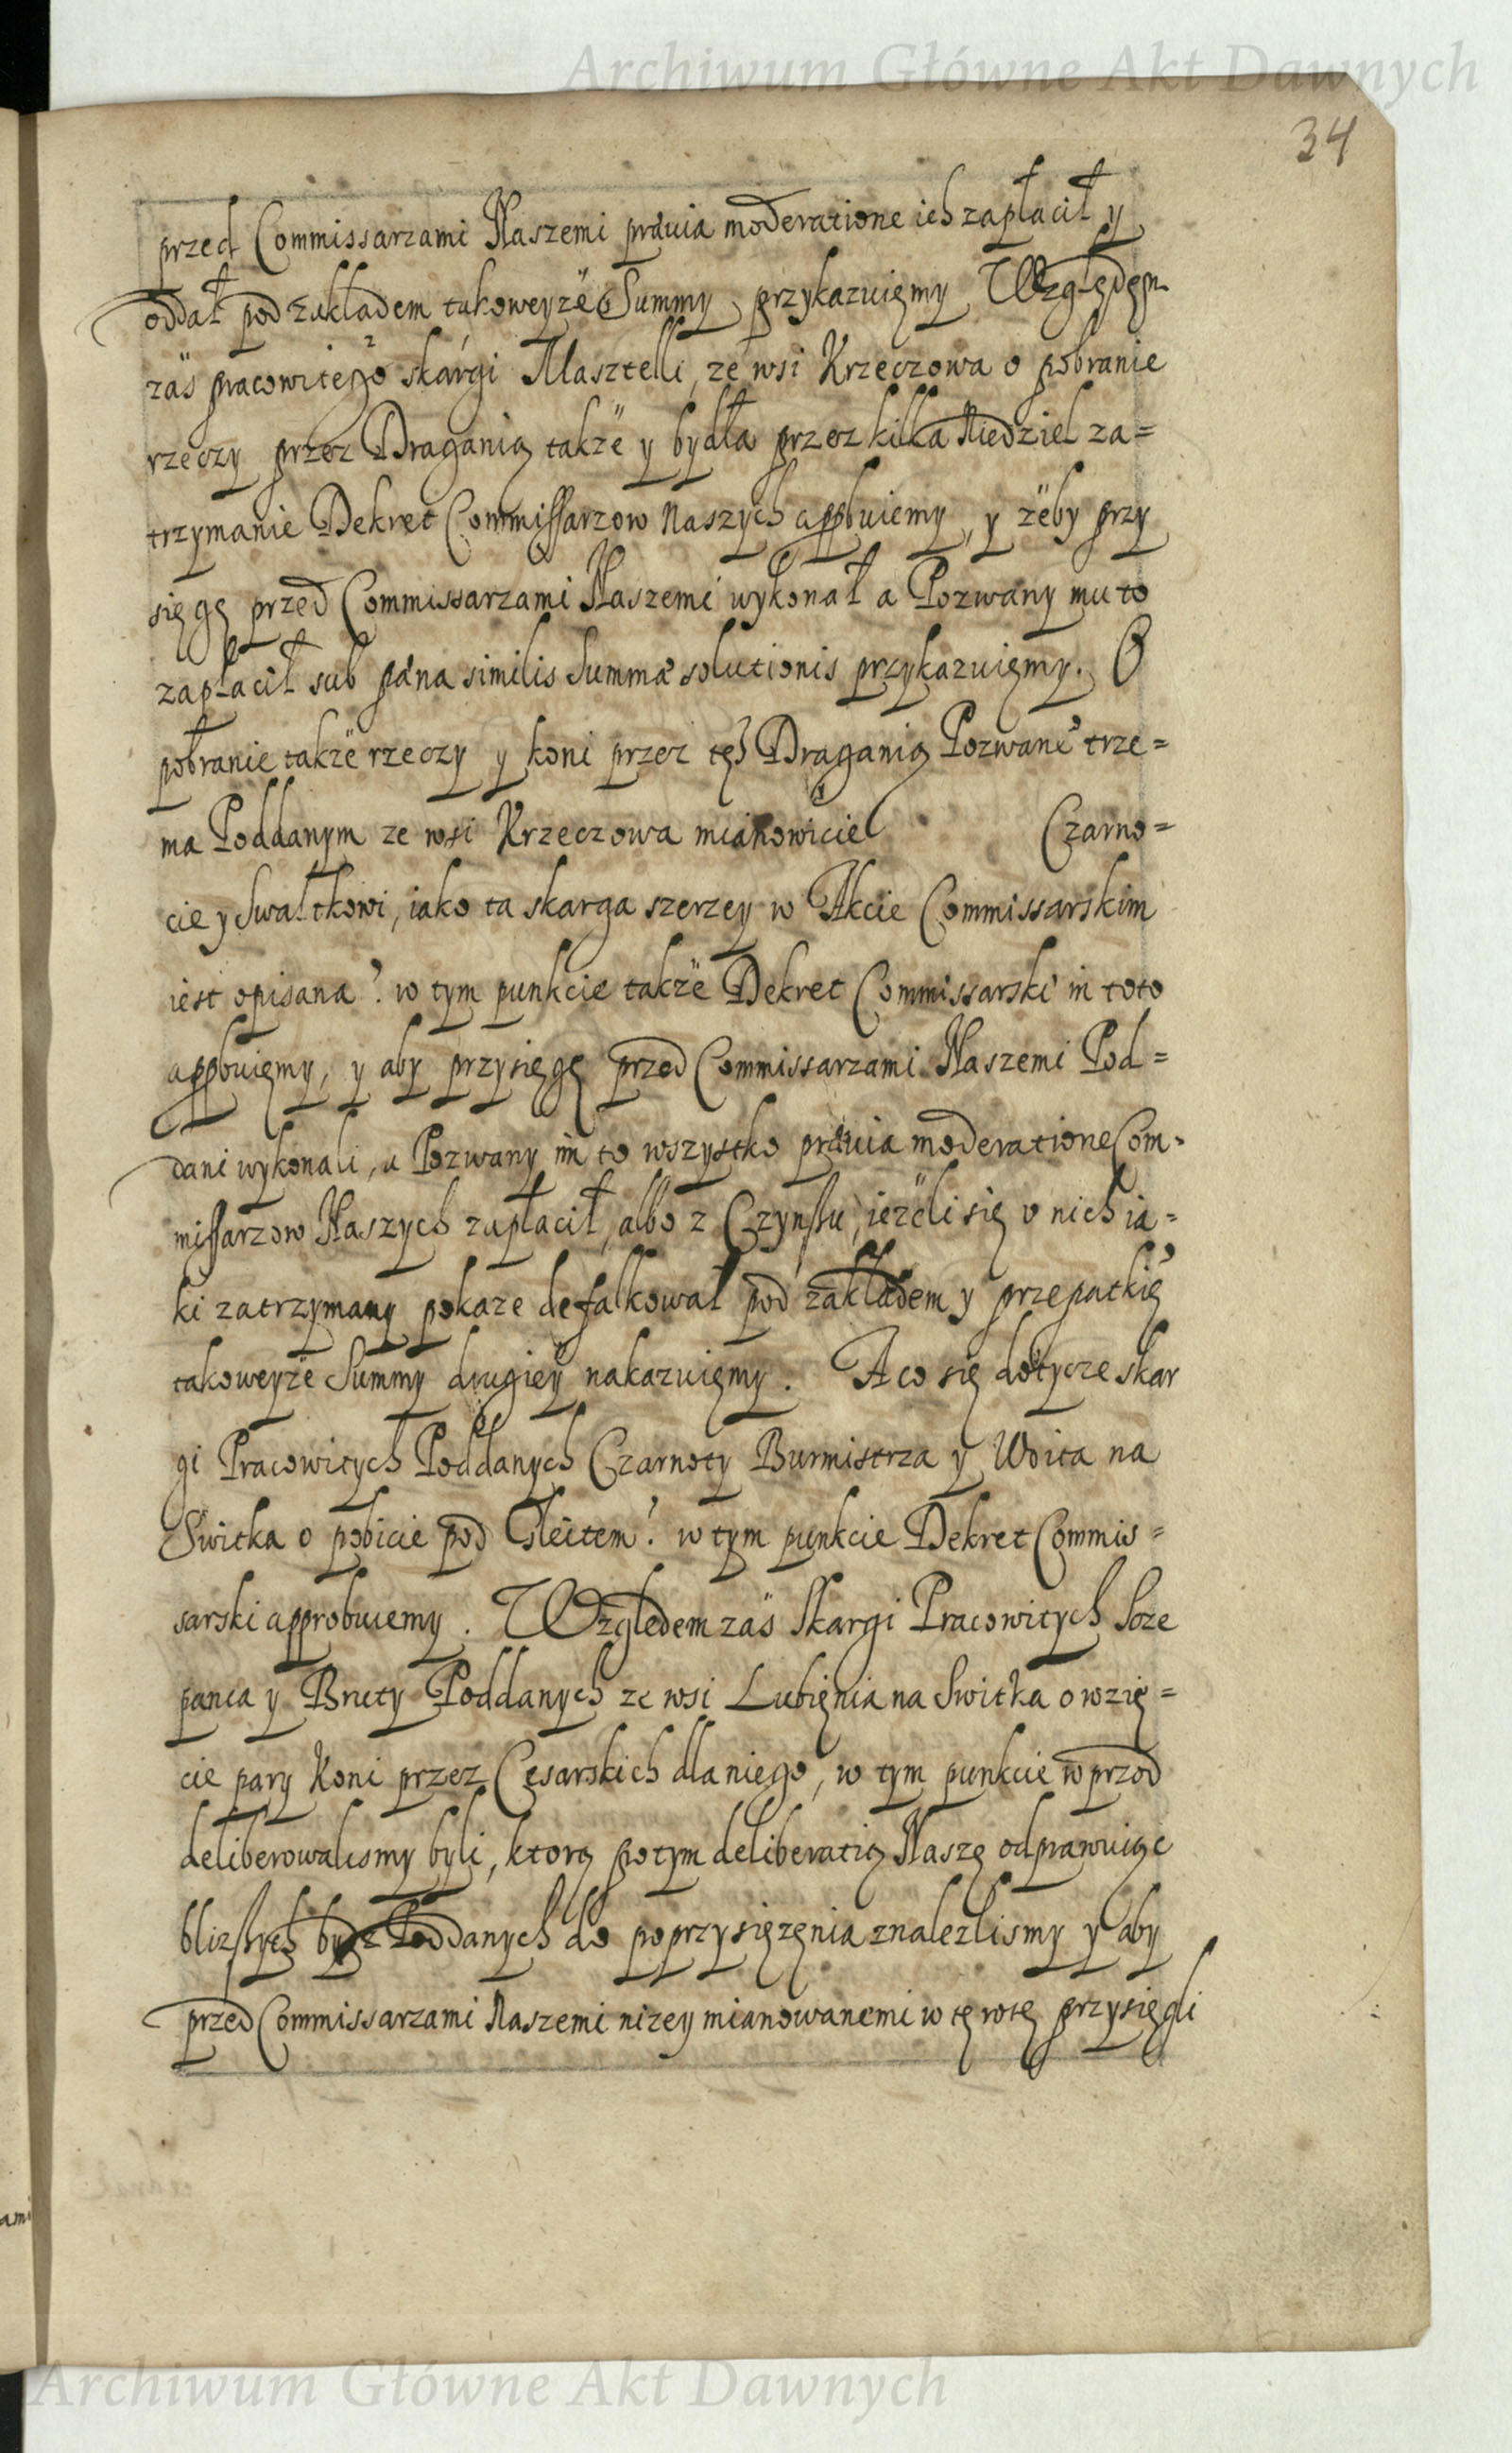 Archiwum Główne Akt Dawnych
34
przed Commissarzami Naszemi prævia moderatione ich zapłacił y
oddał pod zakładem takoweyże Summy przykazuięmy Względęm
zaś pracowitego skargi Masztelli, ze wsi Krzeczowa o pobranie
rzeczy przez Draganią także y bydła przez kilka Niedziel za=
trzymanie Dekret Commissarzow Naszych appbuiemy, y żeby przy
sięgę przed Commissarzami Naszemi wykonał a Pozwany mu to
zapłacił sub pæna similis Summæ solutionis przykazuięmy. O
pobranie także rzeczy y koni przez tęż Draganią Pozwane trze=
ma Poddanym ze wsi Krzeczowa mianowicie Czarno=
cie y Swaltkowi, iako ta skarga szerzey w Akcie Commissarskim
iest opisana? w tym punkcie także Dekret Commissarski in toto
appbuięmy, y aby przysięgę przed Commissarzami Naszemi Pod=
dani wykonali, a Pozwany im to wszystko prævia moderatione Com=
missarzow Naszych zapłacił, albo z Czynszu, ieżeli się v nich ia=
ki zatrzymany pokaze defalkował pod zakładem y przepatkię
takoweyże Summy drugiey nakazuięmy. A co się dotycze skar
gi Pracowitych Poddanych Czarnoty Burmistrza y Woita na
Switka o pobicie pod Gleitem? w tym punkcie Dekret Commis=
sarski approbuiemy. Względem zaś Skargi Pracowitych Szcze
panca y Bruty Poddanych ze wsi Lubięnia na Switka o wzię=
cie pary Koni przez Cesarskich dla niego, w tym punkcie wprzod
deliberowalismy byli, ktorą potym deliberatią Naszę odprawuiąc
blizszych bydz Poddanych do poprzysięzęnia znalezlismy y aby
przed Commissarzami Naszemi nizey mianowanemi w tę rotę przysięgli
ami
Archiwum Główne Akt Dawnych